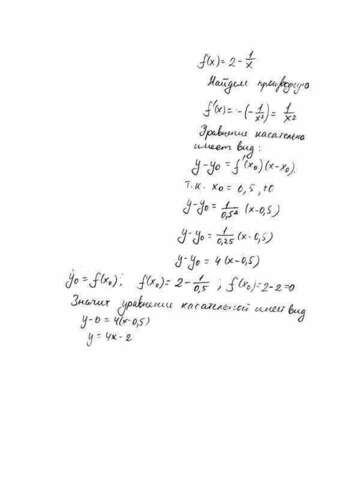 f(x) = 2 - 1/x
Найдем производную
f'(x) = -(-1/x²) = 1/x²
Уравнение касательно
имеет вид:
y-y₀ = f'(x₀)(x-x₀).
т.к. x₀ = 0,5, то
y-y₀ = 1/0,5² (x-0,5)
y-y₀ = 1/0,25 (x-0,5)
y-y₀ = 4(x-0,5)
y₀ = f(x₀); f(x₀) = 2 - 1/0,5; f(x₀) = 2-2=0
Значит уравнение касательной имеет вид
y-0 = 4(x-0,5)
y = 4x-2